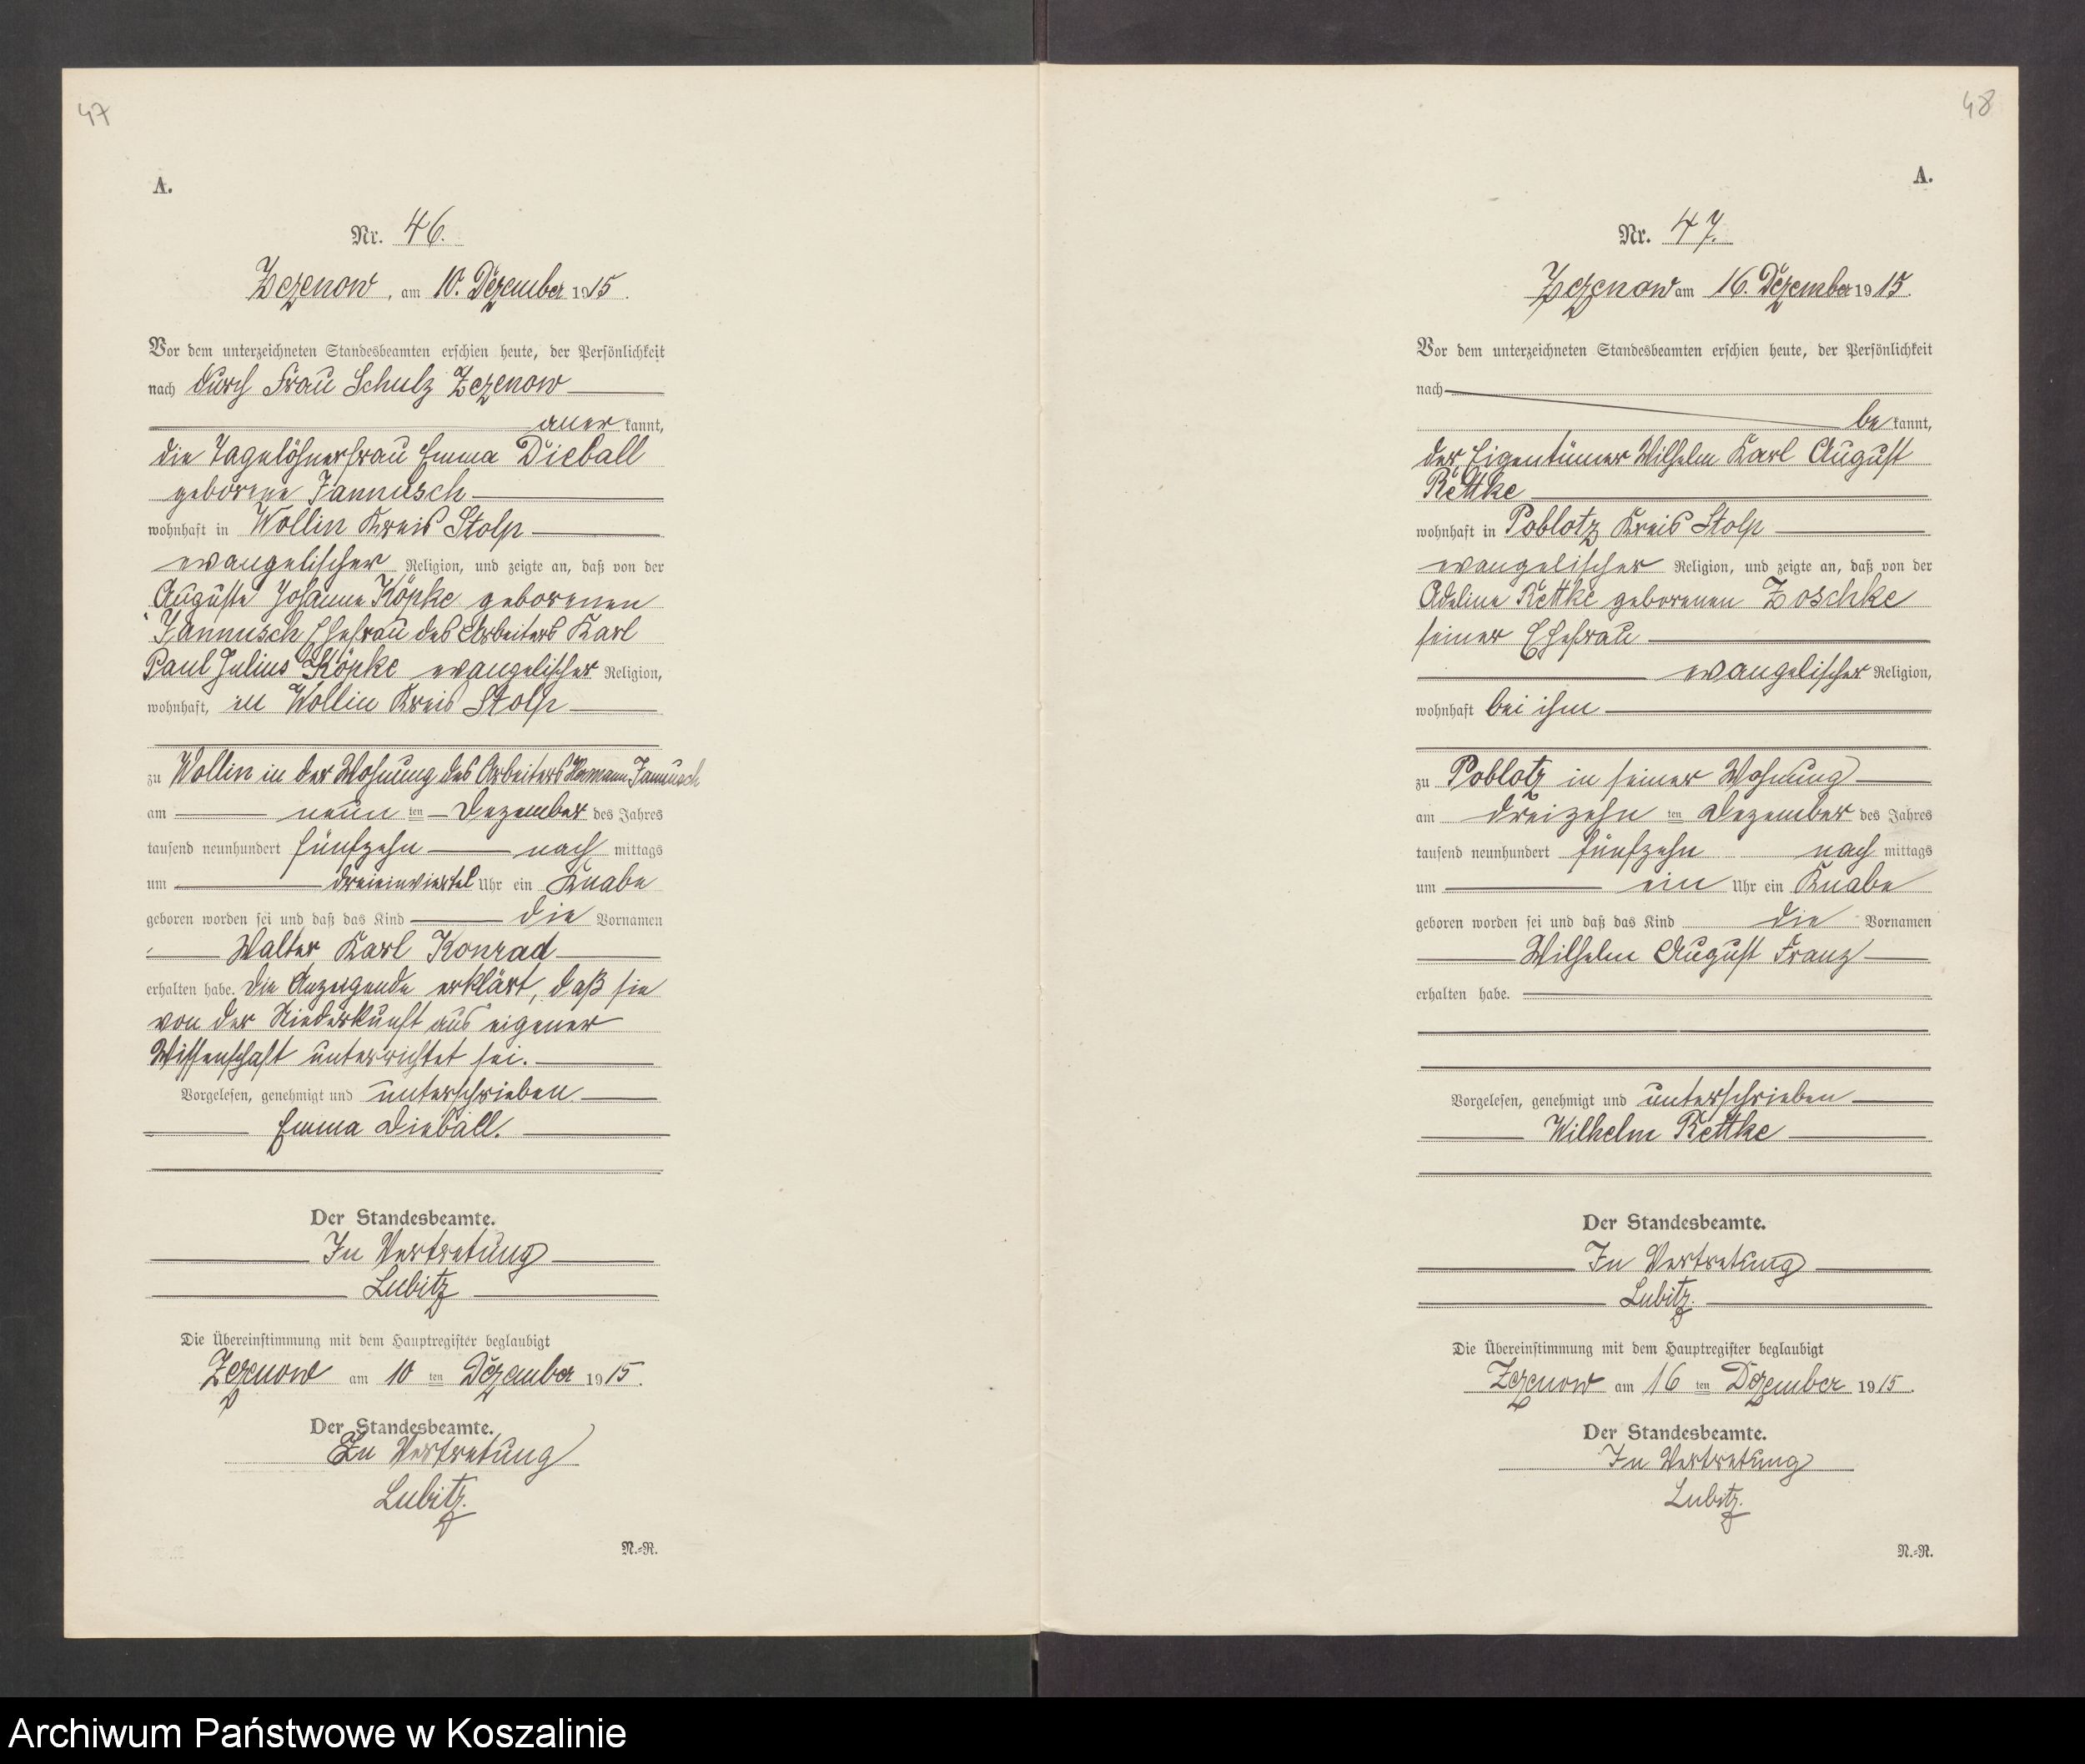 47
A.
Nr. 46.
Zezenow, am 10. Dezember 1915.
Vor dem unterzeichneten Standesbeamten erschien heute, der Persönlichkeit
nach durch Frau Schulz Zezenow
aner kannt,
die Tagelöhnerfrau Emma Dieball
geborene Jannusch
wohnhaft in Wollin Kreis Stolp
evangelischer Religion, und zeigte an, daß von der
Auguste Johanne Köpke geborenen
Jannusch Ehefrau des Arbeiters Karl
Paul Julius Köpke evangelischer Religion,
wohnhaft, in Wollin Kreis Stolp
zu Wollin in der Wohnung des Arbeiters Hermann Jannusch
am neun ten Dezember des Jahres
tausend neunhundert fünfzehn nach mittags
um dreieinviertel Uhr ein Knabe
geboren worden sei und daß das Kind die Vornamen
Walter Karl Konrad
erhalten habe. Die Anzeigende erklärt, daß sie
von der Niederkunft aus eigener
Wissenschaft unterrichtet sei.
Vorgelesen, genehmigt und unterschrieben
Emma Dieball.
Der Standesbeamte.
In Vertretung
Lubitz
Die Übereinstimmung mit dem Hauptregister beglaubigt
Zezenow am 10 ten Dezember 1915.
Der Standesbeamte.
In Vertretung
Lubitz.
N.=R.
48
A.
Nr. 47.
Zezenow am 16. Dezember 1915.
Vor dem unterzeichneten Standesbeamten erschien heute, der Persönlichkeit
nach
be kannt,
der Eigentümer Wilhelm Karl August
Rettke
wohnhaft in Poblotz Kreis Stolp
evangelischer Religion, und zeigte an, daß von der
Adeline Rettke geborenen Zoschke
seiner Ehefrau
evangelischer Religion,
wohnhaft bei ihm
zu Poblotz in seiner Wohnung
am dreizehn ten Dezember des Jahres
tausend neunhundert fünfzehn nach mittags
um ein Uhr ein Knabe
geboren worden sei und daß das Kind die Vornamen
Wilhelm August Franz
erhalten habe.
Vorgelesen, genehmigt und unterschrieben
Wilhelm Rettke
Der Standesbeamte.
In Vertretung
Lubitz.
Die Übereinstimmung mit dem Hauptregister beglaubigt
Zezenow am 16 ten Dezember 1915.
Der Standesbeamte.
In Vertretung
Lubitz.
N.=R.
Archiwum Państwowe w Koszalinie